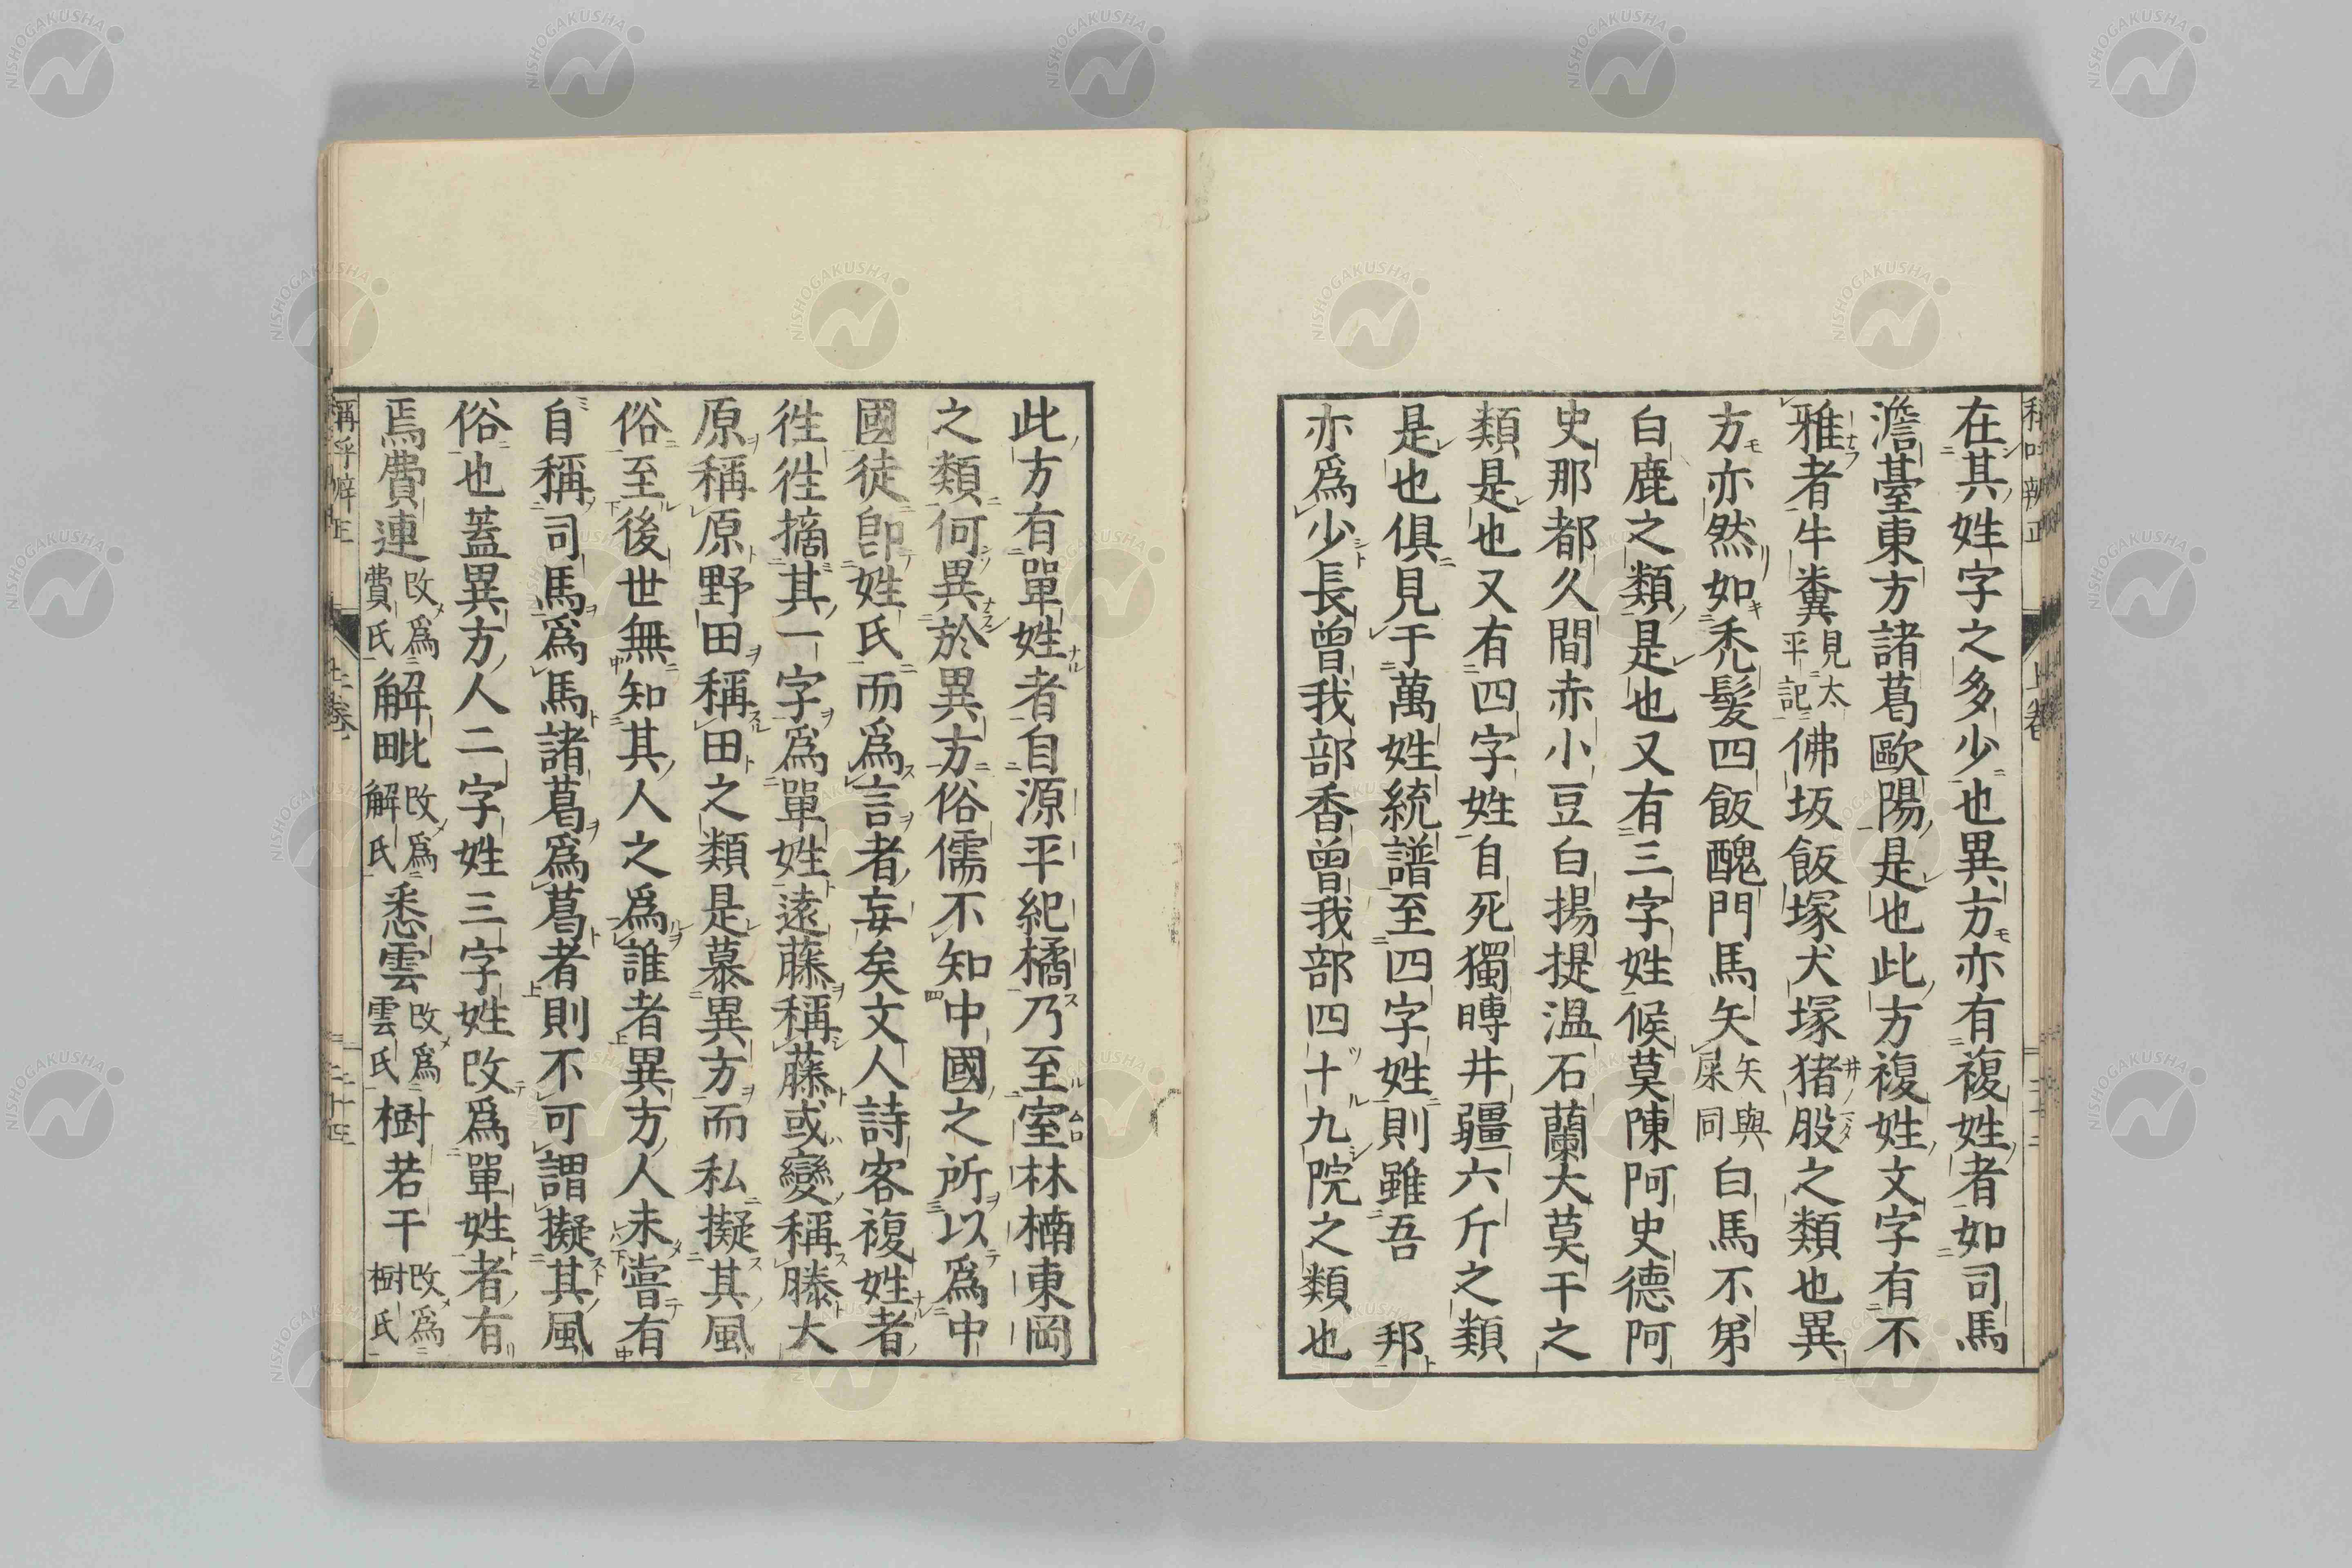 在其姓字之多少也異方亦有複姓者如司馬
澹臺東方諸葛歐陽是也此方複姓文字有不
雅者牛糞見太平記佛坂飯塚犬塚猪股之類也異
方亦然如禿髮四飯醜門馬矢矢與屎同白馬不第
白鹿之類是也又有三字姓候莫陳阿史德阿
史那都久間赤小豆白揚提溫石蘭大莫干之
類是也又有四字姓自死獨膊井疆六斤之類
是也俱見于萬姓統譜至四字姓則雖吾 邦
亦爲少長曾我部香曾我部四十九院之類也
此方有單姓者自源平紀橘乃至室林楠東岡
之類何異於異方俗儒不知中國之所以爲中
國徒卽姓氏而爲言者妄矣文人詩客複姓者
徃徃摘其一字爲單姓遠藤稱藤或變稱滕大
原稱原野田稱田之類是慕異方而私擬其風
俗至後世無知其人之爲誰者異方人未嘗有
自稱司馬爲馬諸葛爲葛者則不可謂擬其風
俗也蓋異方人二字姓三字姓改爲單姓者有
焉費連改爲費氏解毗改爲解氏悉雲改爲雲氏樹若干改爲樹氏
稱乎辨正 上卷 二十四